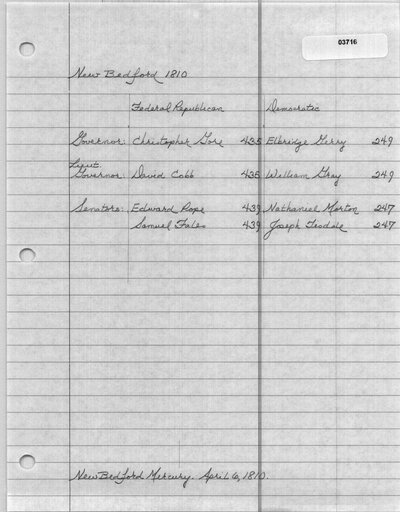 03716
New Bedford 1810
Federal Republican Democratic
Governor: Christopher Gore 435 Elbridge Gerry 249
Lieut.
Governor: David Cobb 435 William Gray 249
Senators: Edward Pope 439 Nathaniel Morton 247
Samuel Fales 439 Joseph Tisdale 247
New Bedford Mercury. April 6, 1810.